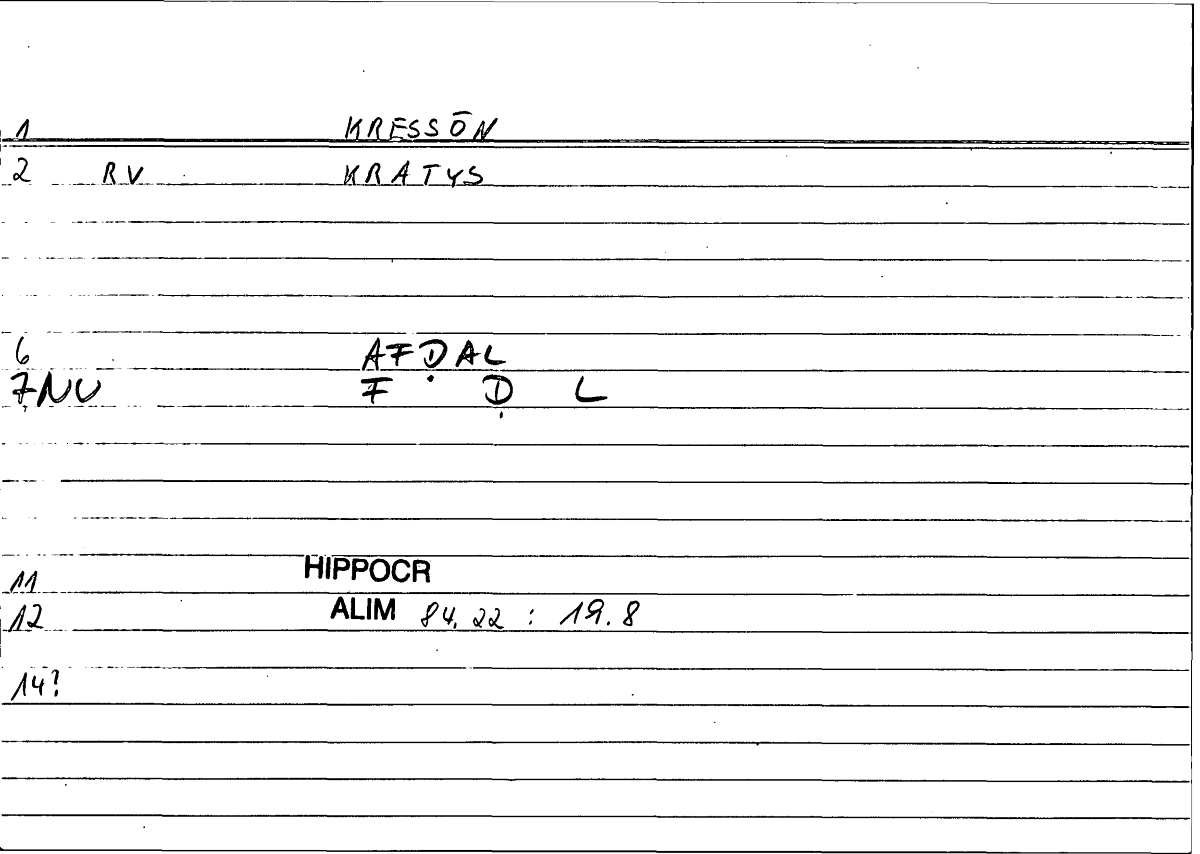 1 KRESSŌN
2 RV KRATYS
6 AFḌAL
7NU F Ḍ L
11 HIPPOCR
12 ALIM 84.22 : 19.8
14?